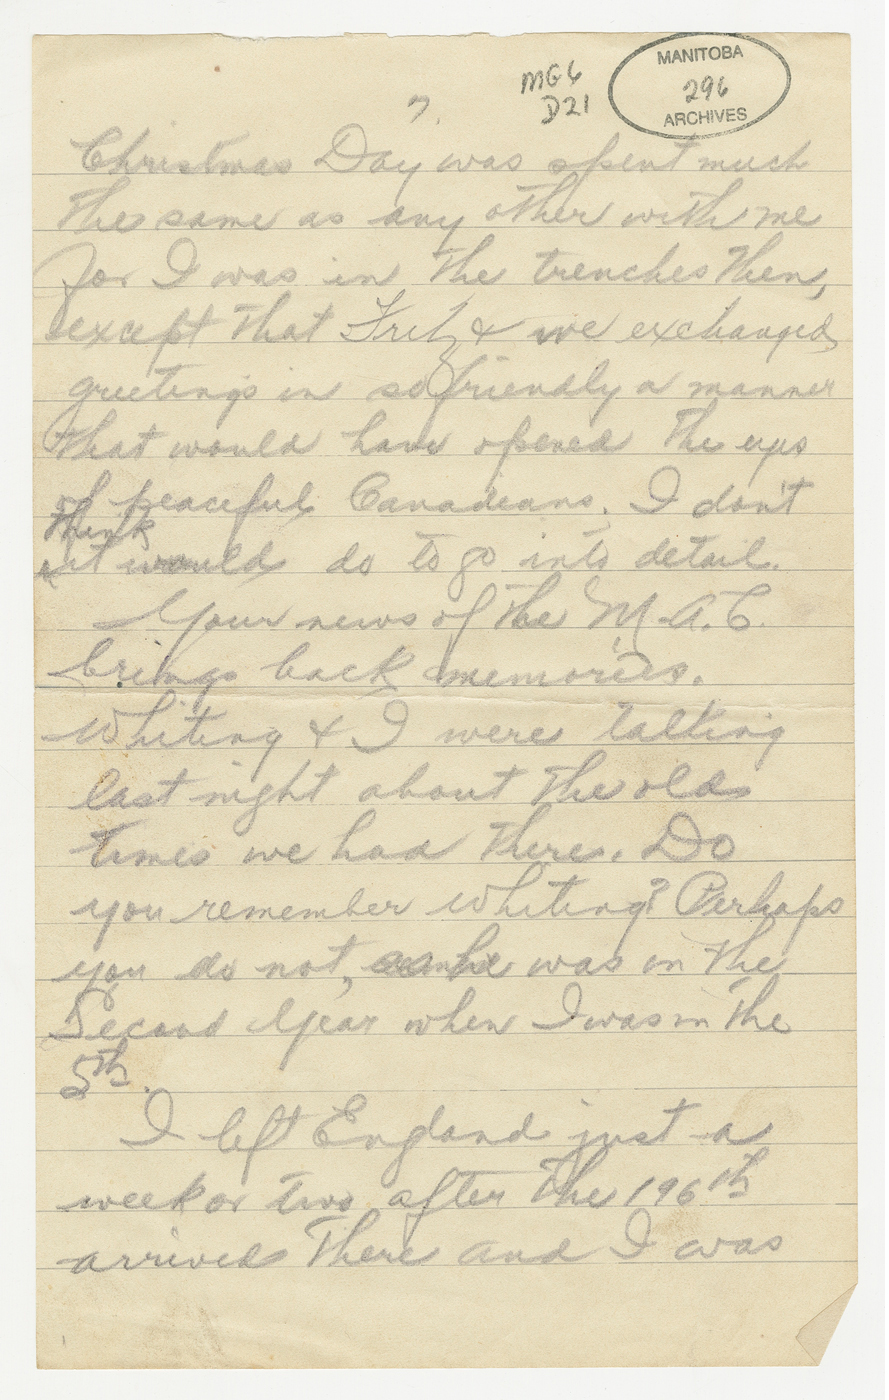 MG6
D21
MANITOBA
296
ARCHIVES
7.
Christmas Day was spent much
the same as any other with me
for I was in the trenches then,
except that Fritz & we exchanged
greetings in so friendly a manner
that would have opened the eyes
of peaceful Canadians. I don't
think
it would do to go into detail.
Your news of the M.A.C.
brings back memories.
Whiting & I were talking
last night about the old
times we had there. Do
you remember Whiting? Perhaps
you do not, he was in the
Second Year when I was in the
5th.
I left England just a
week or two after the 196th
arrived there and I was